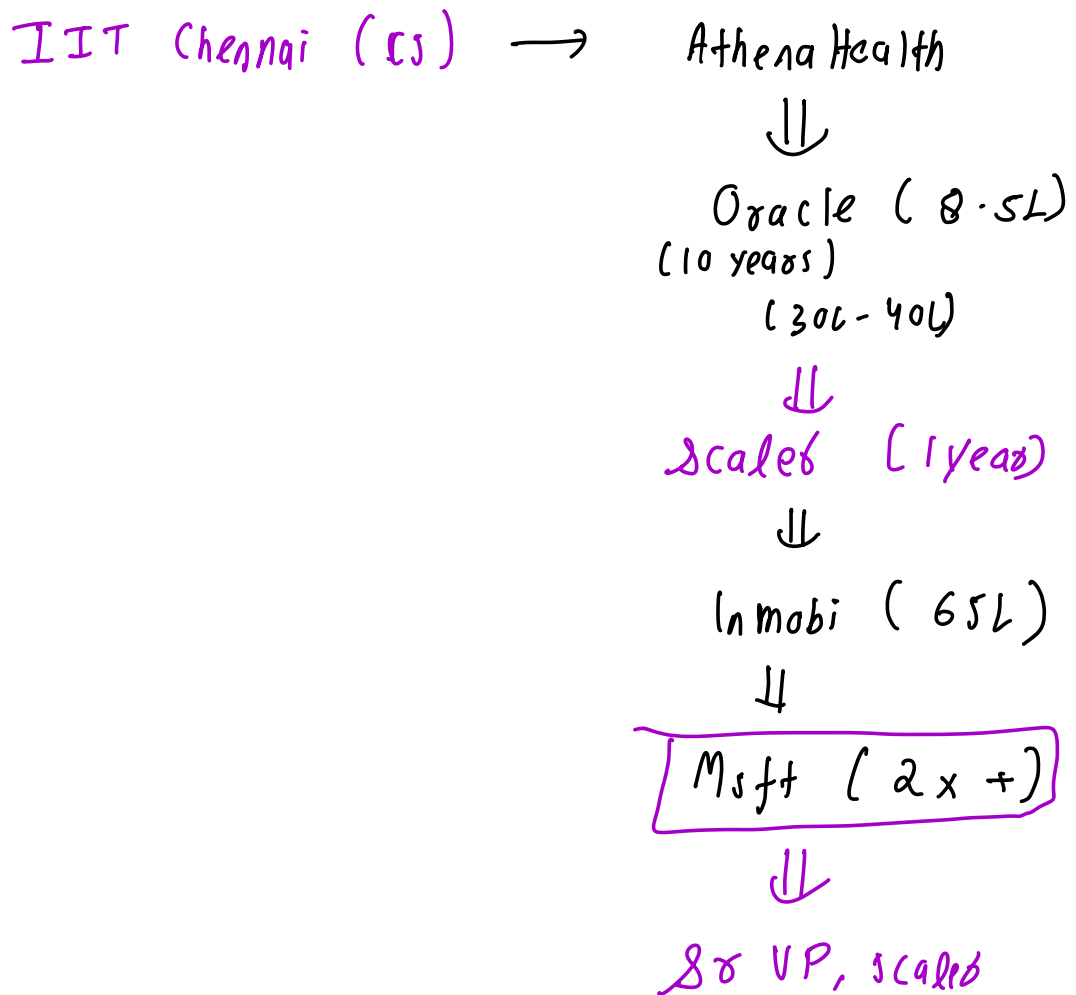 IIT Chennai (CS) → Athena Health
Oracle (8.5L)
(10 years)
(30L - 40L)
Scaler (1 year)
Inmobi (65L)
Msft (2x +)
Sr VP, scaler